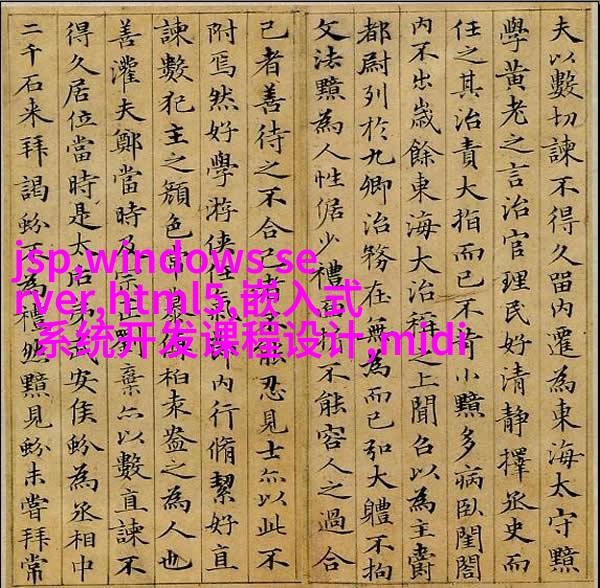 夫以數切諫不得久留內遷為東海太守黯
學黃老之言治官理民好清靜擇丞史而
任之其治責大指而已不苛小黯多病臥閨閤
內不出歲餘東海大治稱之上聞召以為主爵
都尉列於九卿治務在無為而已弘大體不拘
文法黯為人性倨少禮面折不能容人之過合
己者善待之不合己者不能忍見士亦以此不
附焉然好學游俠任氣節內行脩絜好直
諫數犯主之顏色常慕傅柏袁盎之為人也
善灌夫鄭當時及宗正劉棄亦以數直諫不
得久居位當時是太后弟武安侯蚡為丞相中
二千石來拜謁蚡不為禮然黯見蚡未嘗拜常
jsp,windows se
rver,html5,嵌入式
系统开发课程设计,midi